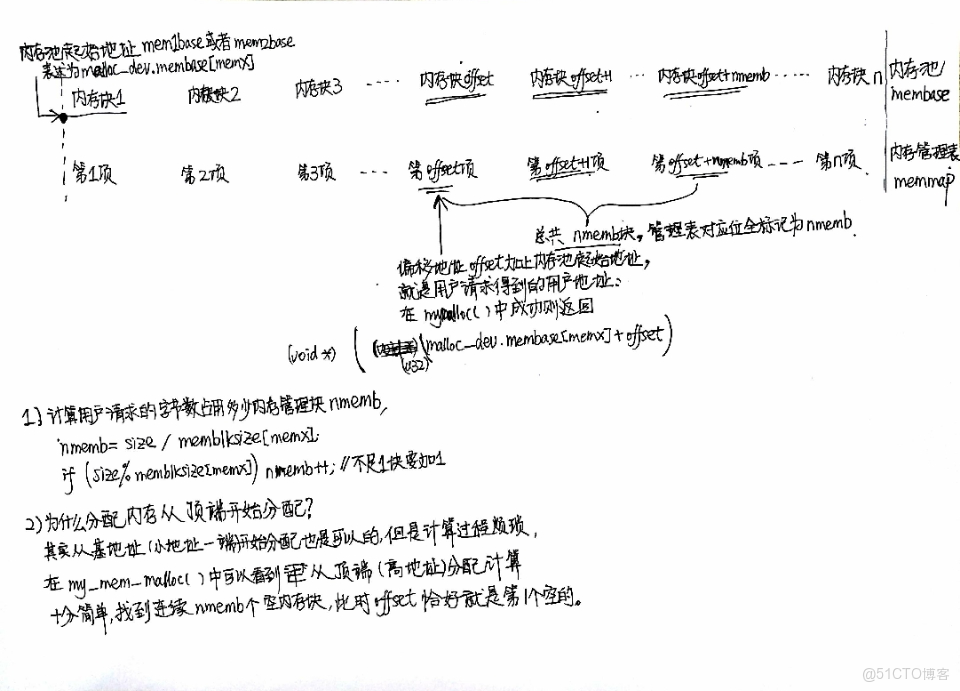 内存池起始地址 mem1base或者mem2base
表述为malloc_dev.membase[memx]
内存块1 内存块2 内存块3 ---- 内存块offset 内存块offset+1 ... 内存块offset+nmemb ..... 内存块n 内存池/
membase
第1项 第2项 第3项 --- 第offset项 第offset+1项 第offset+nmemb项 --- 第n项 内存管理表
memmap
总共 nmemb块,管理表对应位全标记为nmemb.
偏移地址offset加上内存池起始地址,
就是用户请求得到的用户地址.
在 mymalloc()中成功则返回
(void *) ( (u32) malloc_dev.membase[memx]+offset)
1) 计算用户请求的字节数占用多少内存管理块nmemb,
nmemb= size / memblksize[memx];
if (size%memblksize[memx]) nmemb++; //不足1块要加1
2)为什么分配内存从顶端开始分配?
其实从基地址(小地址一端)开始分配也是可以的,但是计算过程烦琐,
在my_mem_malloc()中可以看到 从顶端(高地址)分配计算
十分简单,找到连续nmemb个空内存块,此时offset恰好就是第1个空的。
@51CTO博客